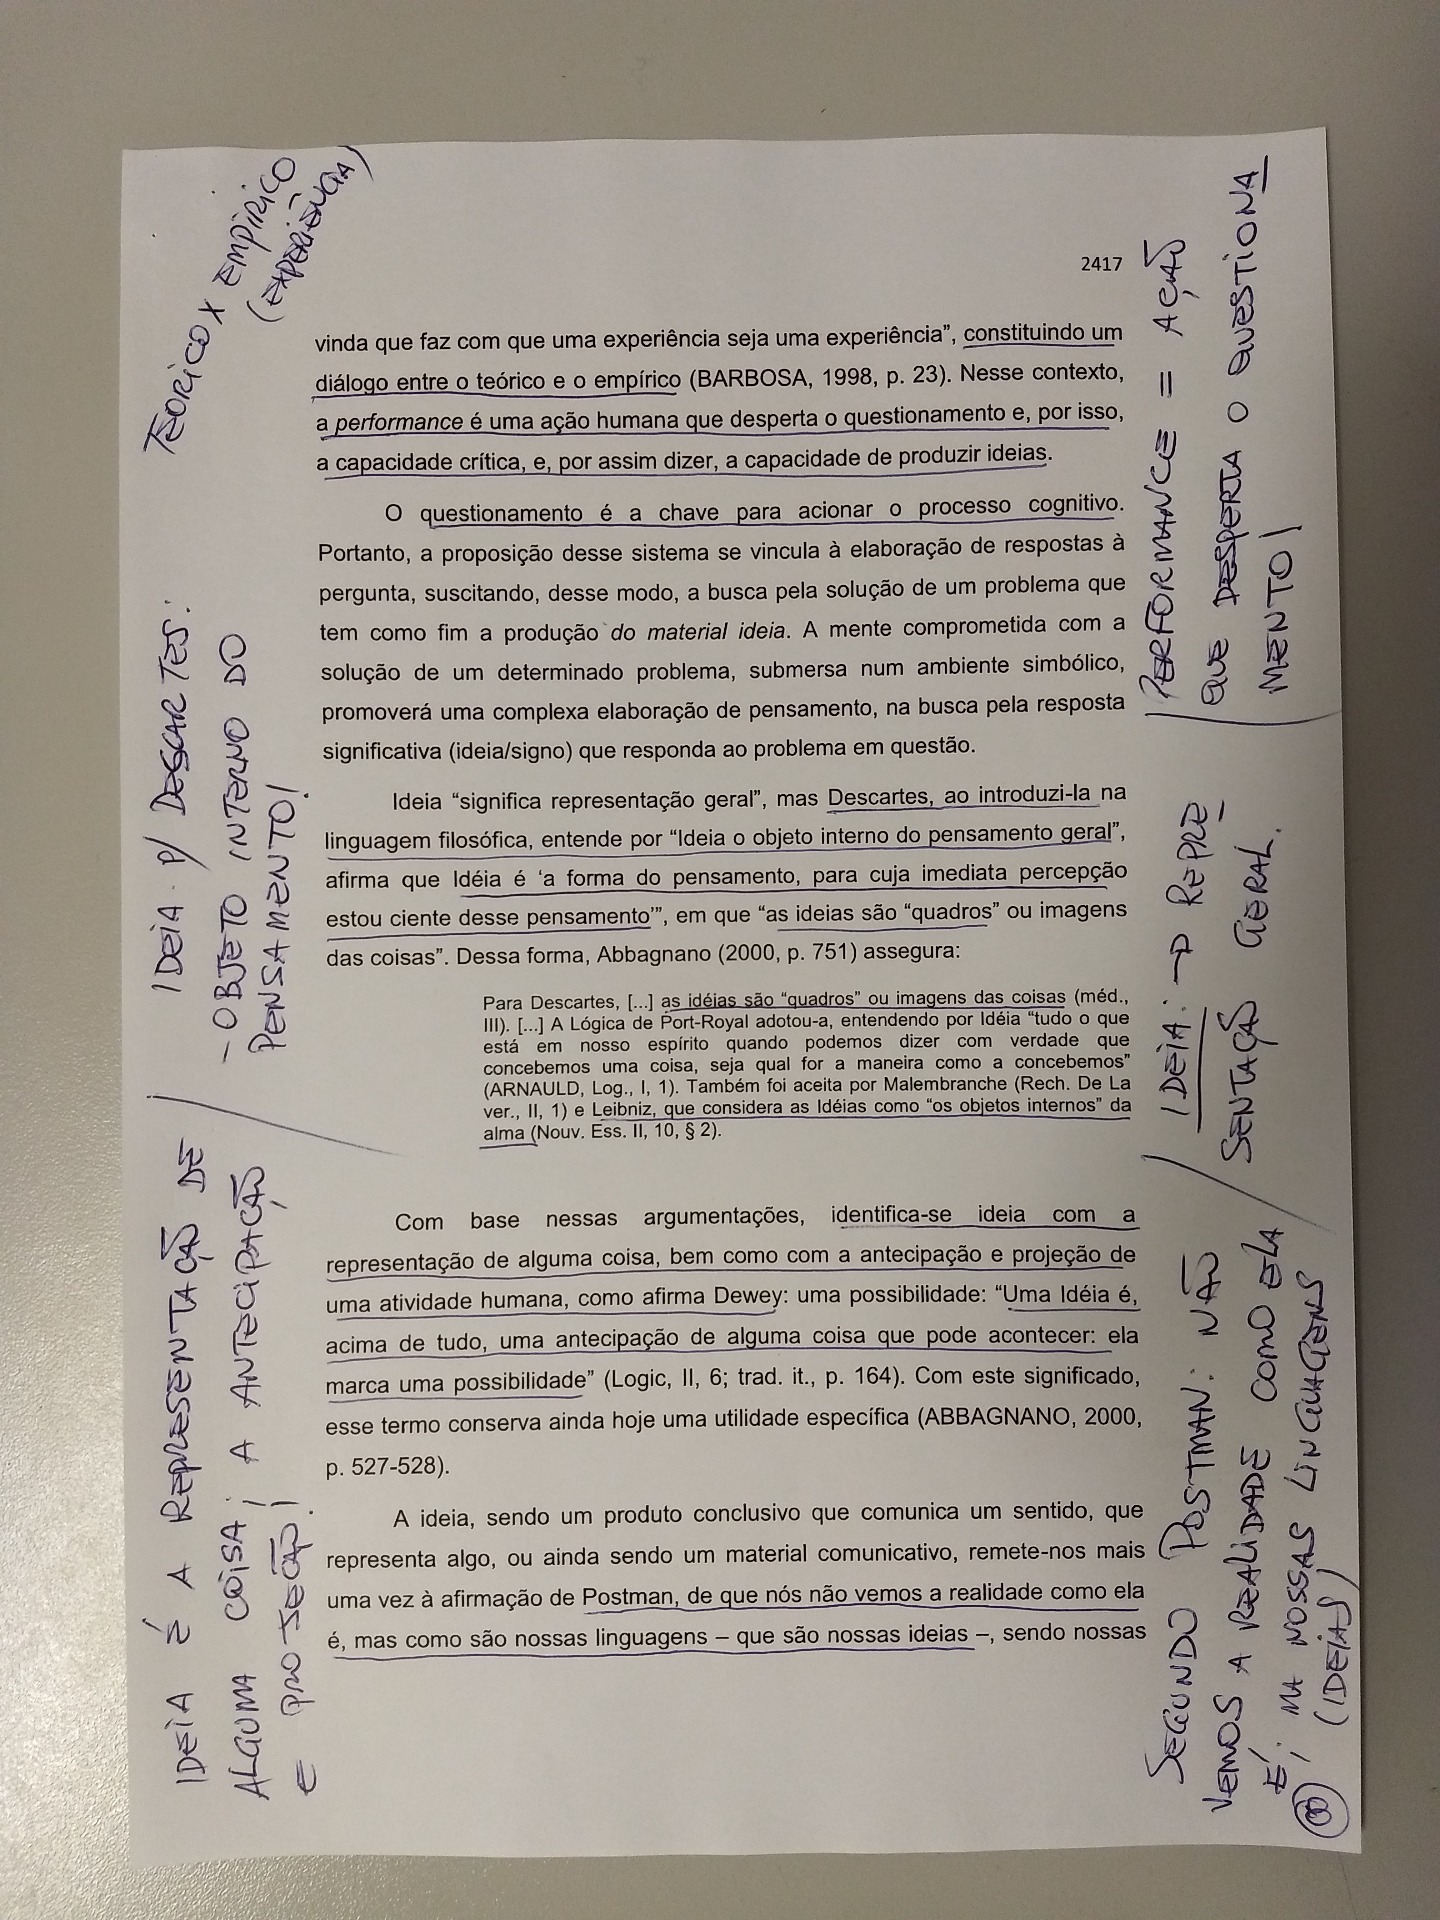 2417
vinda que faz com que uma experiência seja uma experiência”, constituindo um
diálogo entre o teórico e o empírico (BARBOSA, 1998, p. 23). Nesse contexto,
a performance é uma ação humana que desperta o questionamento e, por isso,
a capacidade crítica, e, por assim dizer, a capacidade de produzir ideias.
O questionamento é a chave para acionar o processo cognitivo.
Portanto, a proposição desse sistema se vincula à elaboração de respostas à
pergunta, suscitando, desse modo, a busca pela solução de um problema que
tem como fim a produção do material ideia. A mente comprometida com a
solução de um determinado problema, submersa num ambiente simbólico,
promoverá uma complexa elaboração de pensamento, na busca pela resposta
significativa (ideia/signo) que responda ao problema em questão.
Ideia “significa representação geral”, mas Descartes, ao introduzi-la na
linguagem filosófica, entende por “Ideia o objeto interno do pensamento geral”,
afirma que Idéia é ‘a forma do pensamento, para cuja imediata percepção
estou ciente desse pensamento’”, em que “as ideias são “quadros” ou imagens
das coisas”. Dessa forma, Abbagnano (2000, p. 751) assegura:
Para Descartes, [...] as idéias são “quadros” ou imagens das coisas (méd.,
III). [...] A Lógica de Port-Royal adotou-a, entendendo por Idéia “tudo o que
está em nosso espírito quando podemos dizer com verdade que
concebemos uma coisa, seja qual for a maneira como a concebemos”
(ARNAULD, Log., I, 1). Também foi aceita por Malembranche (Rech. De La
ver., II, 1) e Leibniz, que considera as Idéias como “os objetos internos” da
alma (Nouv. Ess. II, 10, § 2).
Com base nessas argumentações, identifica-se ideia com a
representação de alguma coisa, bem como com a antecipação e projeção de
uma atividade humana, como afirma Dewey: uma possibilidade: “Uma Idéia é,
acima de tudo, uma antecipação de alguma coisa que pode acontecer: ela
marca uma possibilidade” (Logic, II, 6; trad. it., p. 164). Com este significado,
esse termo conserva ainda hoje uma utilidade específica (ABBAGNANO, 2000,
p. 527-528).
A ideia, sendo um produto conclusivo que comunica um sentido, que
representa algo, ou ainda sendo um material comunicativo, remete-nos mais
uma vez à afirmação de Postman, de que nós não vemos a realidade como ela
é, mas como são nossas linguagens – que são nossas ideias –, sendo nossas
TEÓRICO X EMPÍRICO
(EXPERIÊNCIA)
IDEIA P/ DESCARTES:
- OBJETO INTERNO DO
PENSAMENTO!
IDEIA É A REPRESENTAÇÃO DE
ALGUMA COISA; A ANTECIPAÇÃO
E PROJEÇÃO!
PERFORMANCE = AÇÃO
QUE DESPERTA O QUESTIONA
MENTO!
IDEIA: → REPRE-
SENTAÇÃO GERAL.
SEGUNDO POSTMAN: NÃO
VEMOS A REALIDADE COMO ELA
É; MA NOSSAS LINGUAGENS
(IDEIAS)